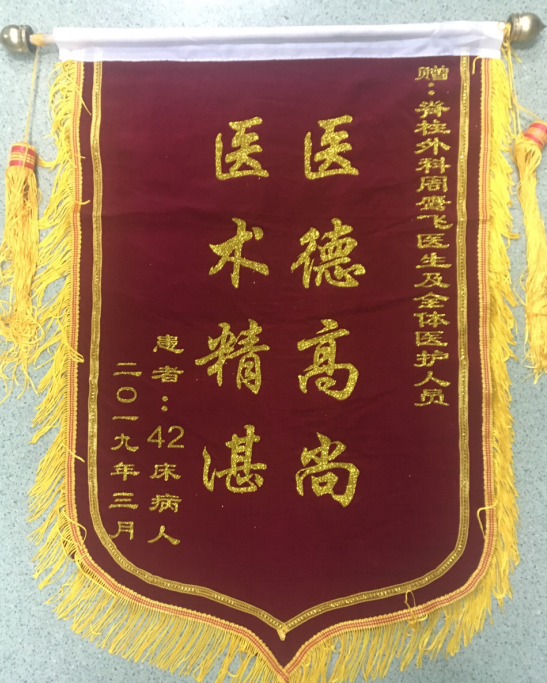 赠：脊柱外科周鹰飞医生及全体医护人员
医德高尚
医术精湛
患者：42床病人
二〇一九年三月